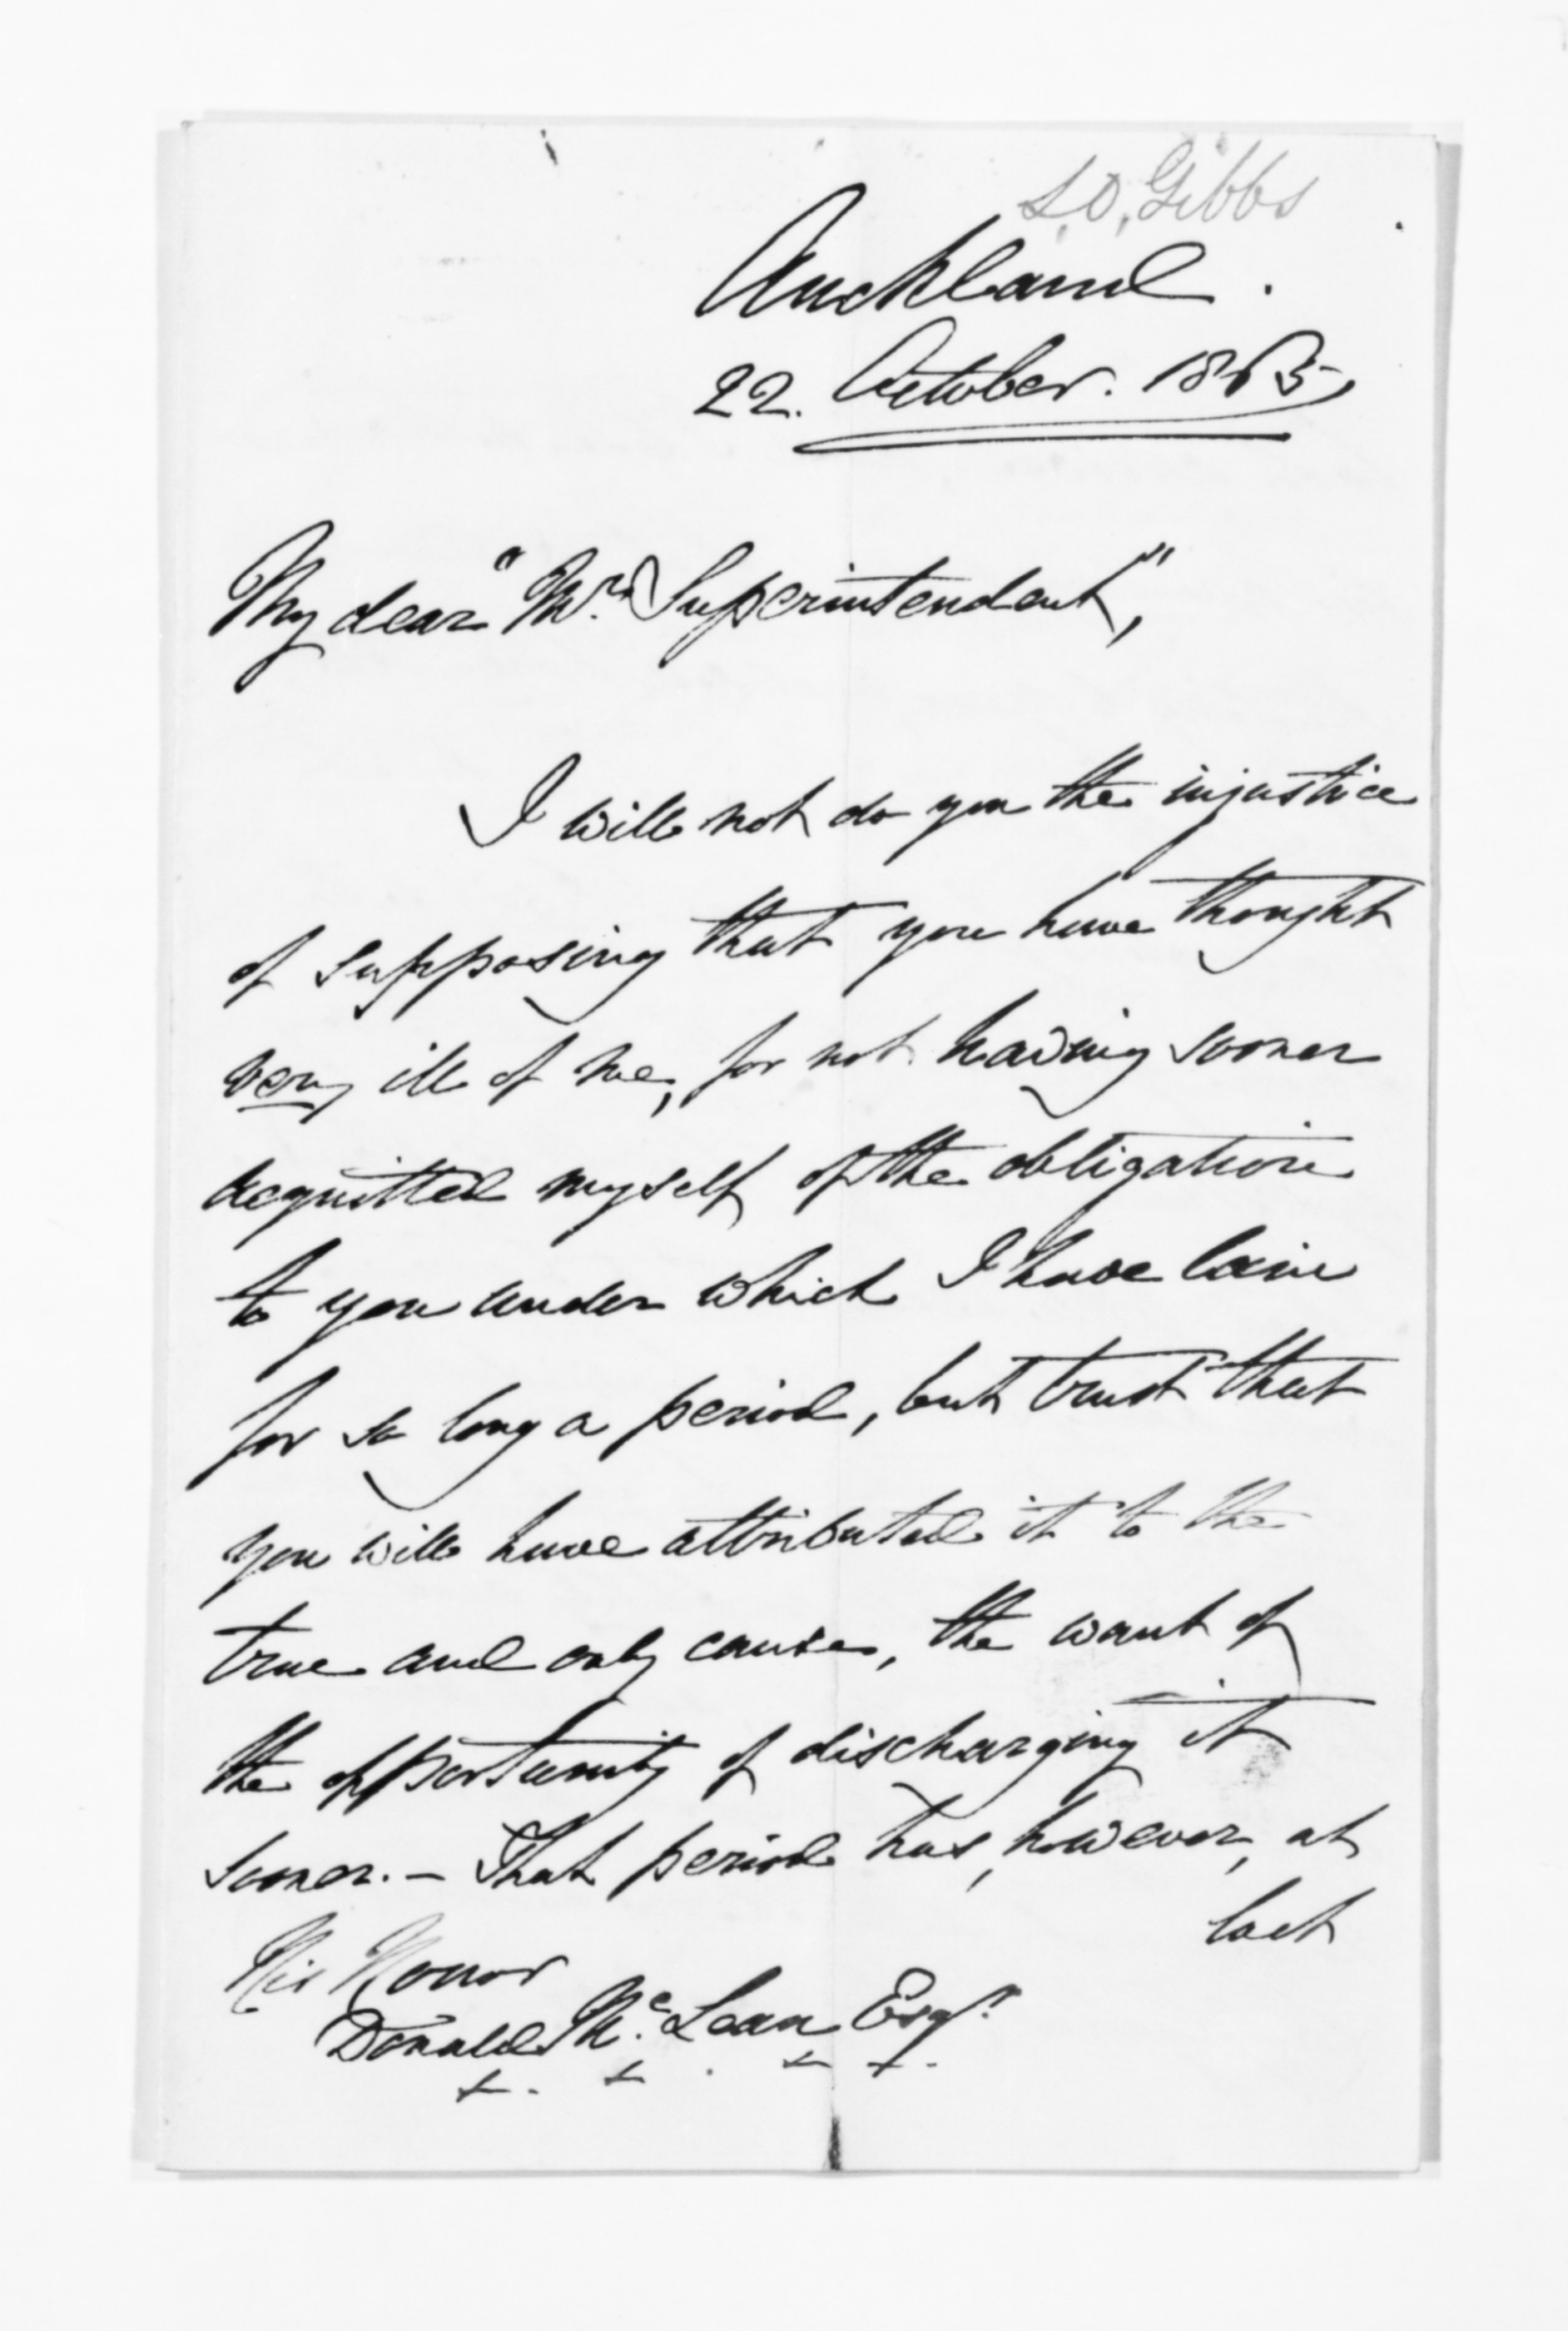 S.O. Gibbs
Auckland.
22. October. 1863,
My dear "Mr. Superintendent",
I will not do you the injustice
of supposing that you have thought
very ill of me, for not having sooner
acquitted myself of the obligation
to you under which I have lain
for so long a period, but trust that
you will have attributed it to the
true and only cause, the want of
the opportunity of discharging it
sooner. - That period has, however, at
last
His Honor
Donald McLean Esqr.